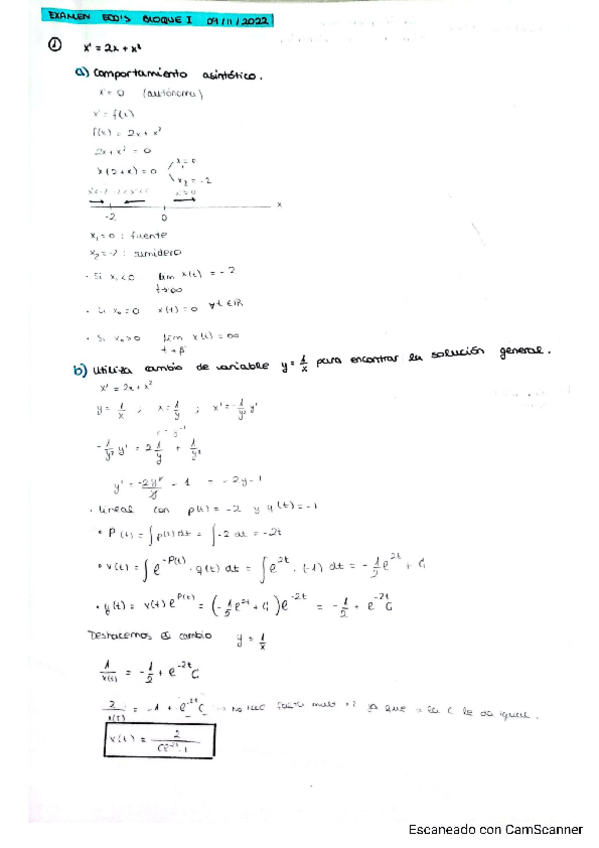 EXAMEN EDO'S BLOQUE I 09/11/2022
① x' = 2x + x²
a) Comportamiento asintótico.
x' = 0 (autónoma)
x' = f(x)
f(x) = 2x + x²
2x + x² = 0
x(2+x) = 0 x₁ = 0
x₂ = -2
x
-2 0
x₁ = 0 : fuente
x₂ = -2 : sumidero
· Si x₀ < 0 lim x(t) = -2
t→∞
· Si x₀ = 0 x(t) = 0 ∀t ∈ ℝ
· Si x₀ > 0 lim x(t) = ∞
t→β
b) Utiliza cambio de variable y = 1/x para encontrar la solución general.
x' = 2x + x²
y = 1/x ; x = 1/y ; x' = -1/y² y'
-1/y² y' = 2 1/y + 1/y²
y' = -2y²/y - 1 = -2y - 1
· lineal con p(t) = -2 y q(t) = -1
• P(t) = ∫p(t) dt = ∫-2 dt = -2t
• v(t) = ∫e^-P(t) · q(t) dt = ∫e^2t · (-1) dt = -1/2 e^2t + C
• y(t) = v(t) e^P(t) = (-1/2 e^2t + C) e^-2t = -1/2 + e^-2t C
Deshacemos el cambio y = 1/x
1/x(t) = -1/2 + e^-2t C
2/x(t) = -1 + e^-2t C → no hace falta mult ·2 ya que a la C le da igual.
x(t) = 2/(Ce^-2t - 1)
Escaneado con CamScanner